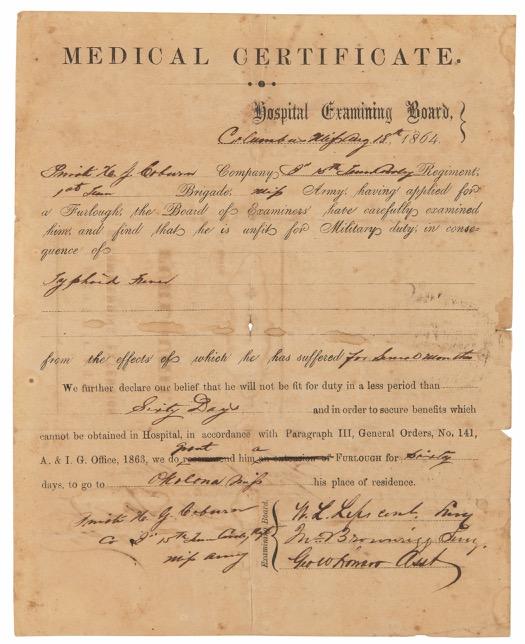 MEDICAL CERTIFICATE.
Hospital Examining Board,
Columbus Miss Aug 18th 1864.
H. J. Coburn Company "D" 15th Tenn Regiment,
1st Tenn Brigade, Miss Army, having applied for
a Furlough, the Board of Examiners have carefully examined
him, and find that he is unfit for Military duty, in conse-
quence of
Typhoid Fever
from the effects of which he has suffered for months
We further declare our belief that he will not be fit for duty in a less period than
Sixty Days and in order to secure benefits which
cannot be obtained in Hospital, in accordance with Paragraph III, General Orders, No. 141,
A. & I. G. Office, 1863, we do grant him a FURLOUGH for Sixty
days, to go to Okolona Miss his place of residence.
H. J. Coburn
Co "D" 15th Tenn
Miss Army
Examining Board.
W. L. Surg
Brownrigg Surg.
Geo W Asst